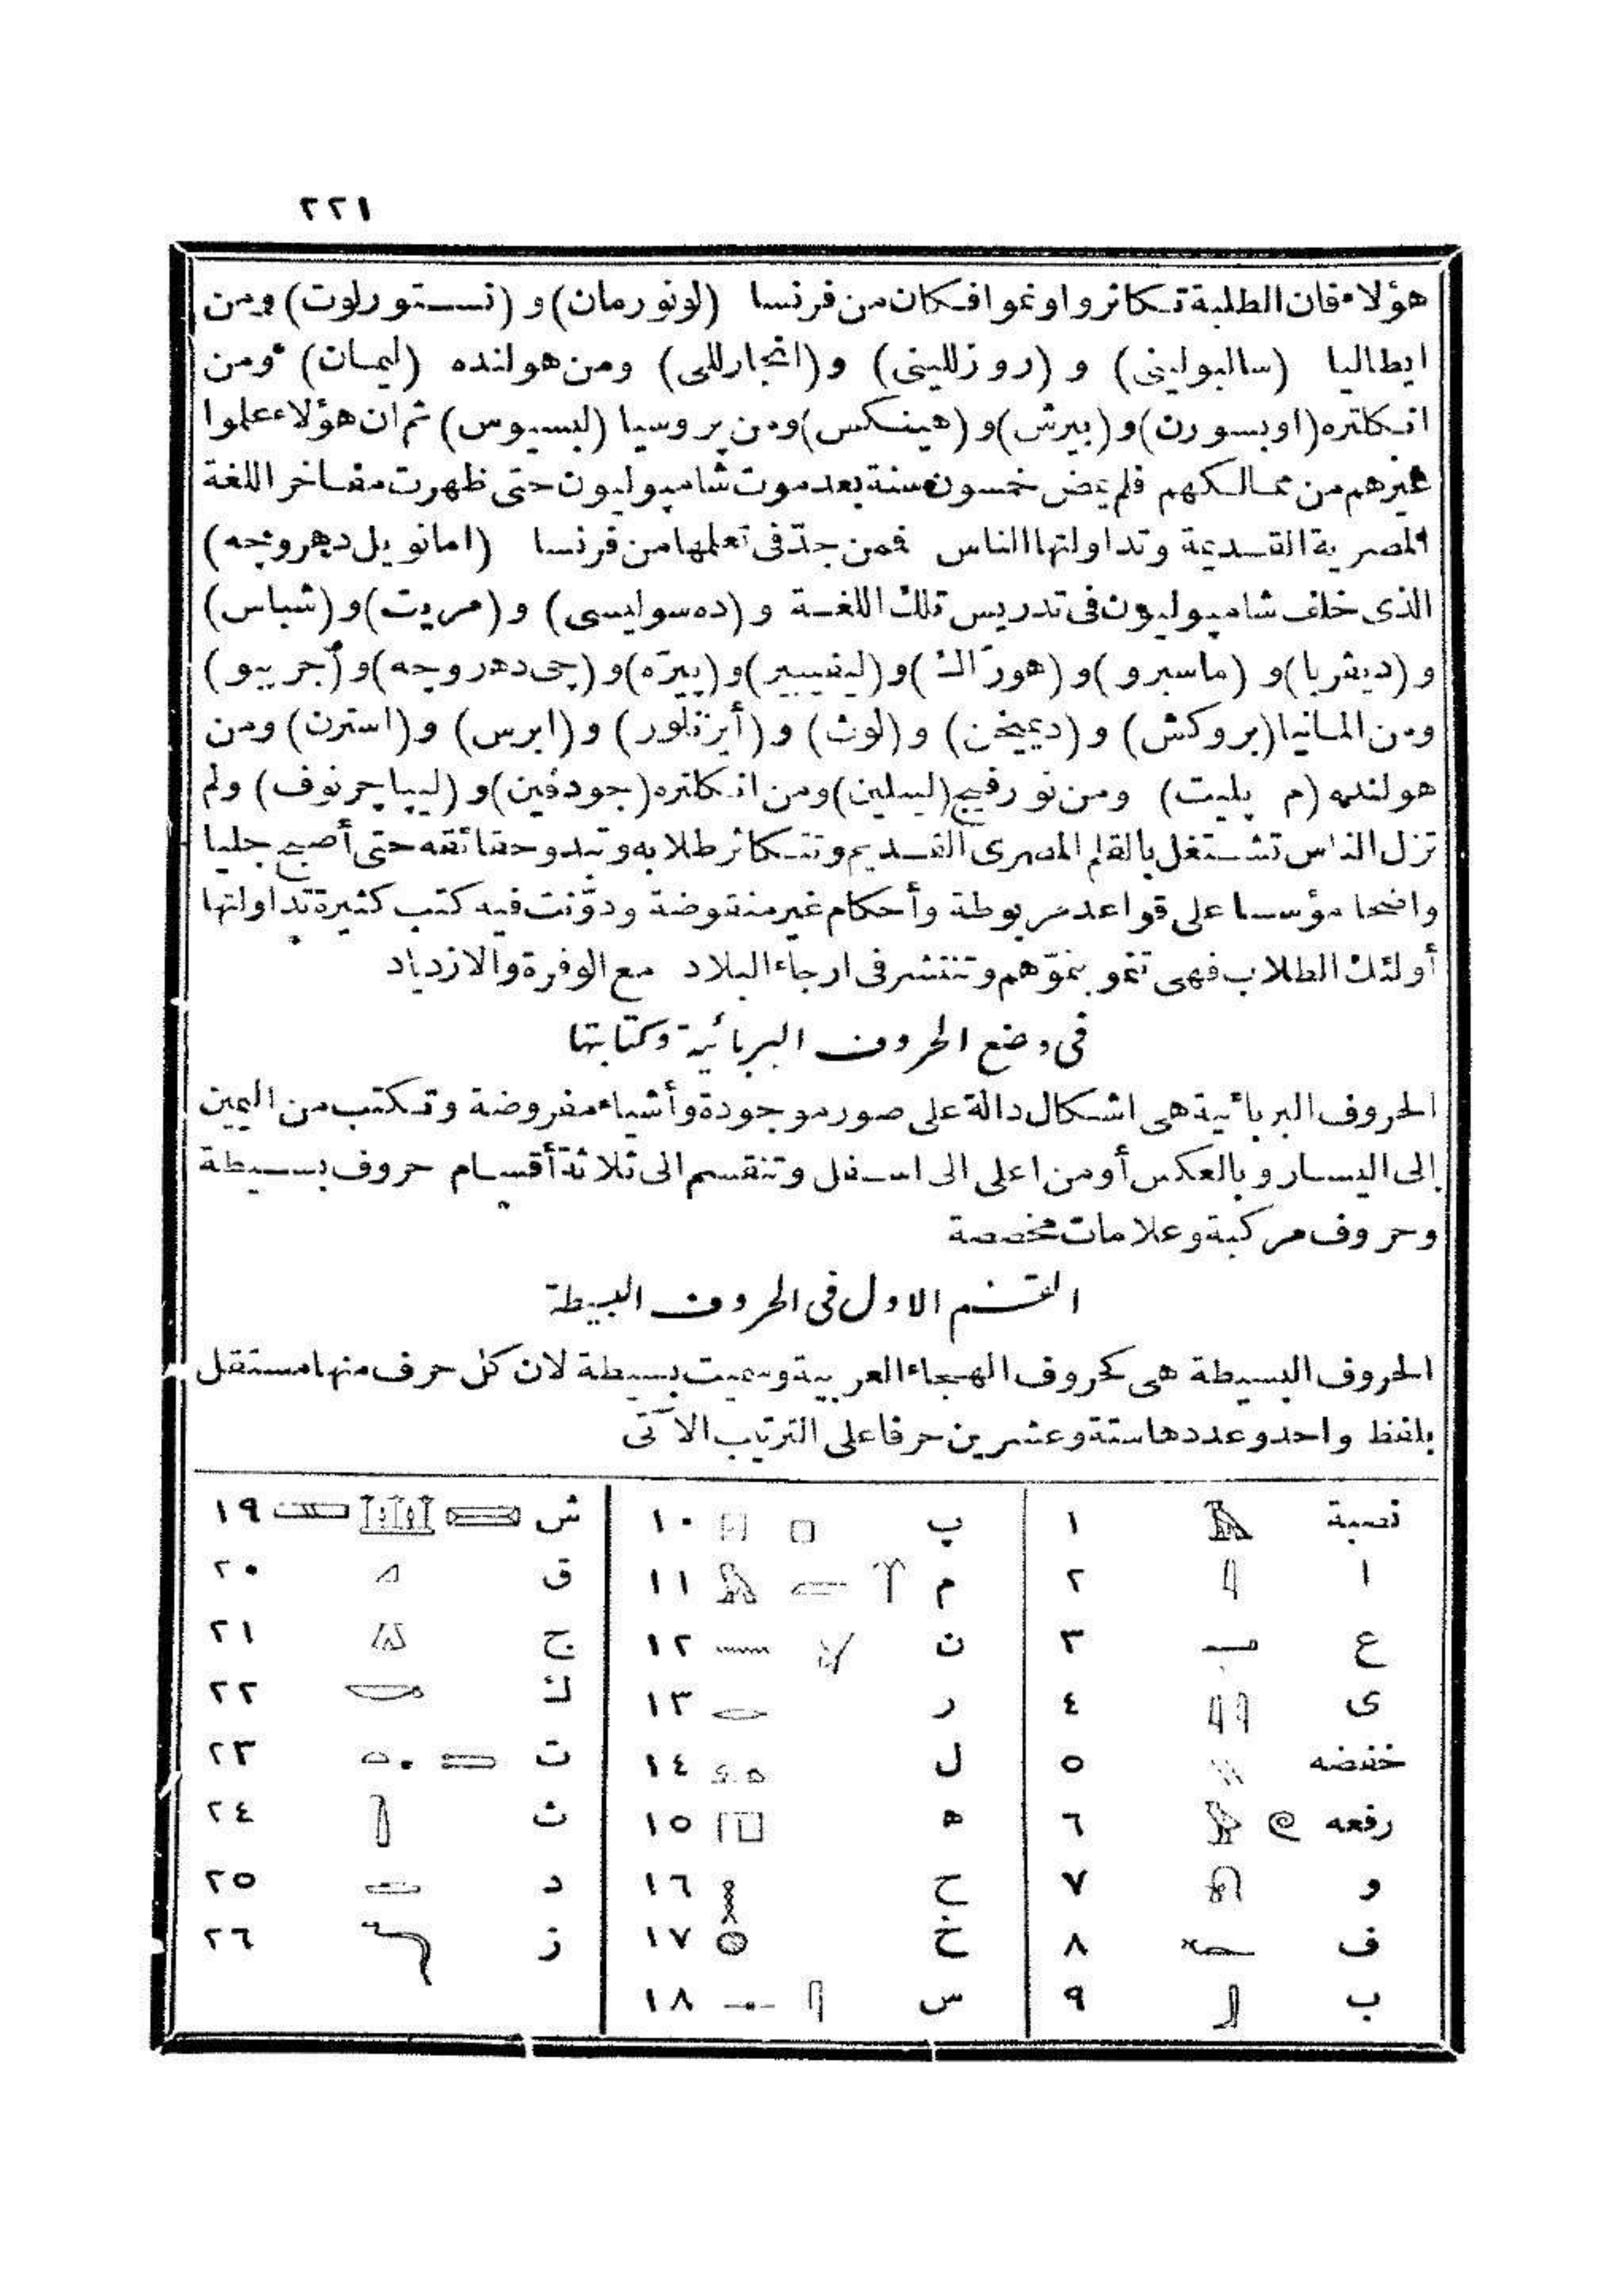 ٢٢١
هؤلاء فان الطلبة تكاثروا ونموا فكان من فرنسا (لونورمان) و (نستورلوت) ومن
ايطاليا (سالبولينى) و (روزللينى) و (انجارللى) ومن هولنده (ليمان) ومن
انكلتره (اوبسورن) و (بيرش) و (هينكس) ومن پروسيا (لبسيوس) ثم ان هؤلاء علموا
غيرهم من ممالكهم فلم يمض خمسون سنة بعد موت شامپوليون حتى ظهرت مفاخر اللغة
المصرية القديمة وتداولتها الناس فمن جدّ فى تعلمها من فرنسا (امانويل دهروجه)
الذى خلف شامپوليون فى تدريس تلك اللغة و (ده سوليسى) و (مريت) و (شباس)
و (ديڤريا) و (ماسبرو) و (هورّاك) و (ليفيبير) و (پيرّه) و (چى دهروجه) و (جريبو)
ومن المانيا (بروكش) و (ديميخن) و (لوث) و (أيزنلور) و (ابرس) و (استرن) ومن
هولنده (م پليت) ومن نورفيج (ليبلين) ومن انكلتره (جودفين) و (ليپاچرنوف) ولم
تزل الناس تشتغل بالقلم المصرى القديم وتتكاثر طلابه وتبدو حقائقه حتى أصبح جليا
واضحا مؤسسا على قواعد مربوطة وأحكام غير منقوضة ودوّنت فيه كتب كثيرة تداولتها
أولئك الطلاب فهى تنمو بنموّهم وتنتشر فى ارجاء البلاد مع الوفرة والازدياد
فى وضع الحروف البربائية وكتابتها
الحروف البربائية هى اشكال دالة على صور موجودة وأشياء مفروضة وتكتب من اليمين
إلى اليسار وبالعكس أو من اعلى الى اسفل وتنقسم الى ثلاثة أقسام حروف بسيطة
وحروف مركبة وعلامات مخصصة
القسم الاول فى الحروف البسيطة
الحروف البسيطة هى كحروف الهجاء العربية وسميت بسيطة لان كل حرف منها مستقل
بلفظ واحد وعددها ستة وعشرين حرفا على الترتيب الآتى
نصبة ١
ا ٢
ع ٣
ى ٤
خفضه ٥
رفعه ٦
و ٧
ف ٨
ب ٩
پ ١٠
م ١١
ن ١٢
ر ١٣
ل ١٤
ه ١٥
ح ١٦
خ ١٧
س ١٨
ش ١٩
ق ٢٠
ج ٢١
ك ٢٢
ت ٢٣
ث ٢٤
د ٢٥
ز ٢٦